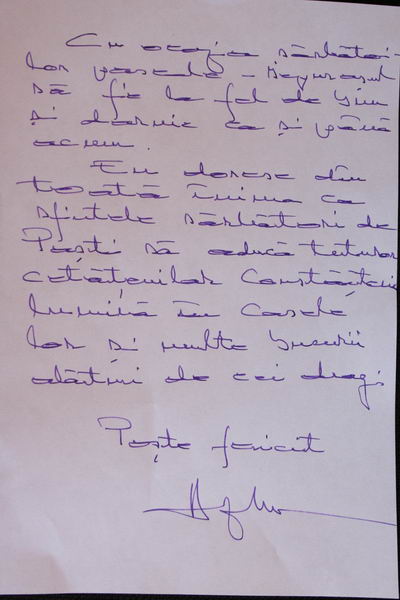 Cu ocazia sărbători-
lor pascale - Iepurașul
să fie la fel de bun
și darnic ca și până
acum.
Eu doresc din
toată inima ca
sfintele sărbători de
Paști să aducă tuturor
cetățenilor Constanței
lumină în casele
lor și multe bucurii
alături de cei dragi
Paște fericit